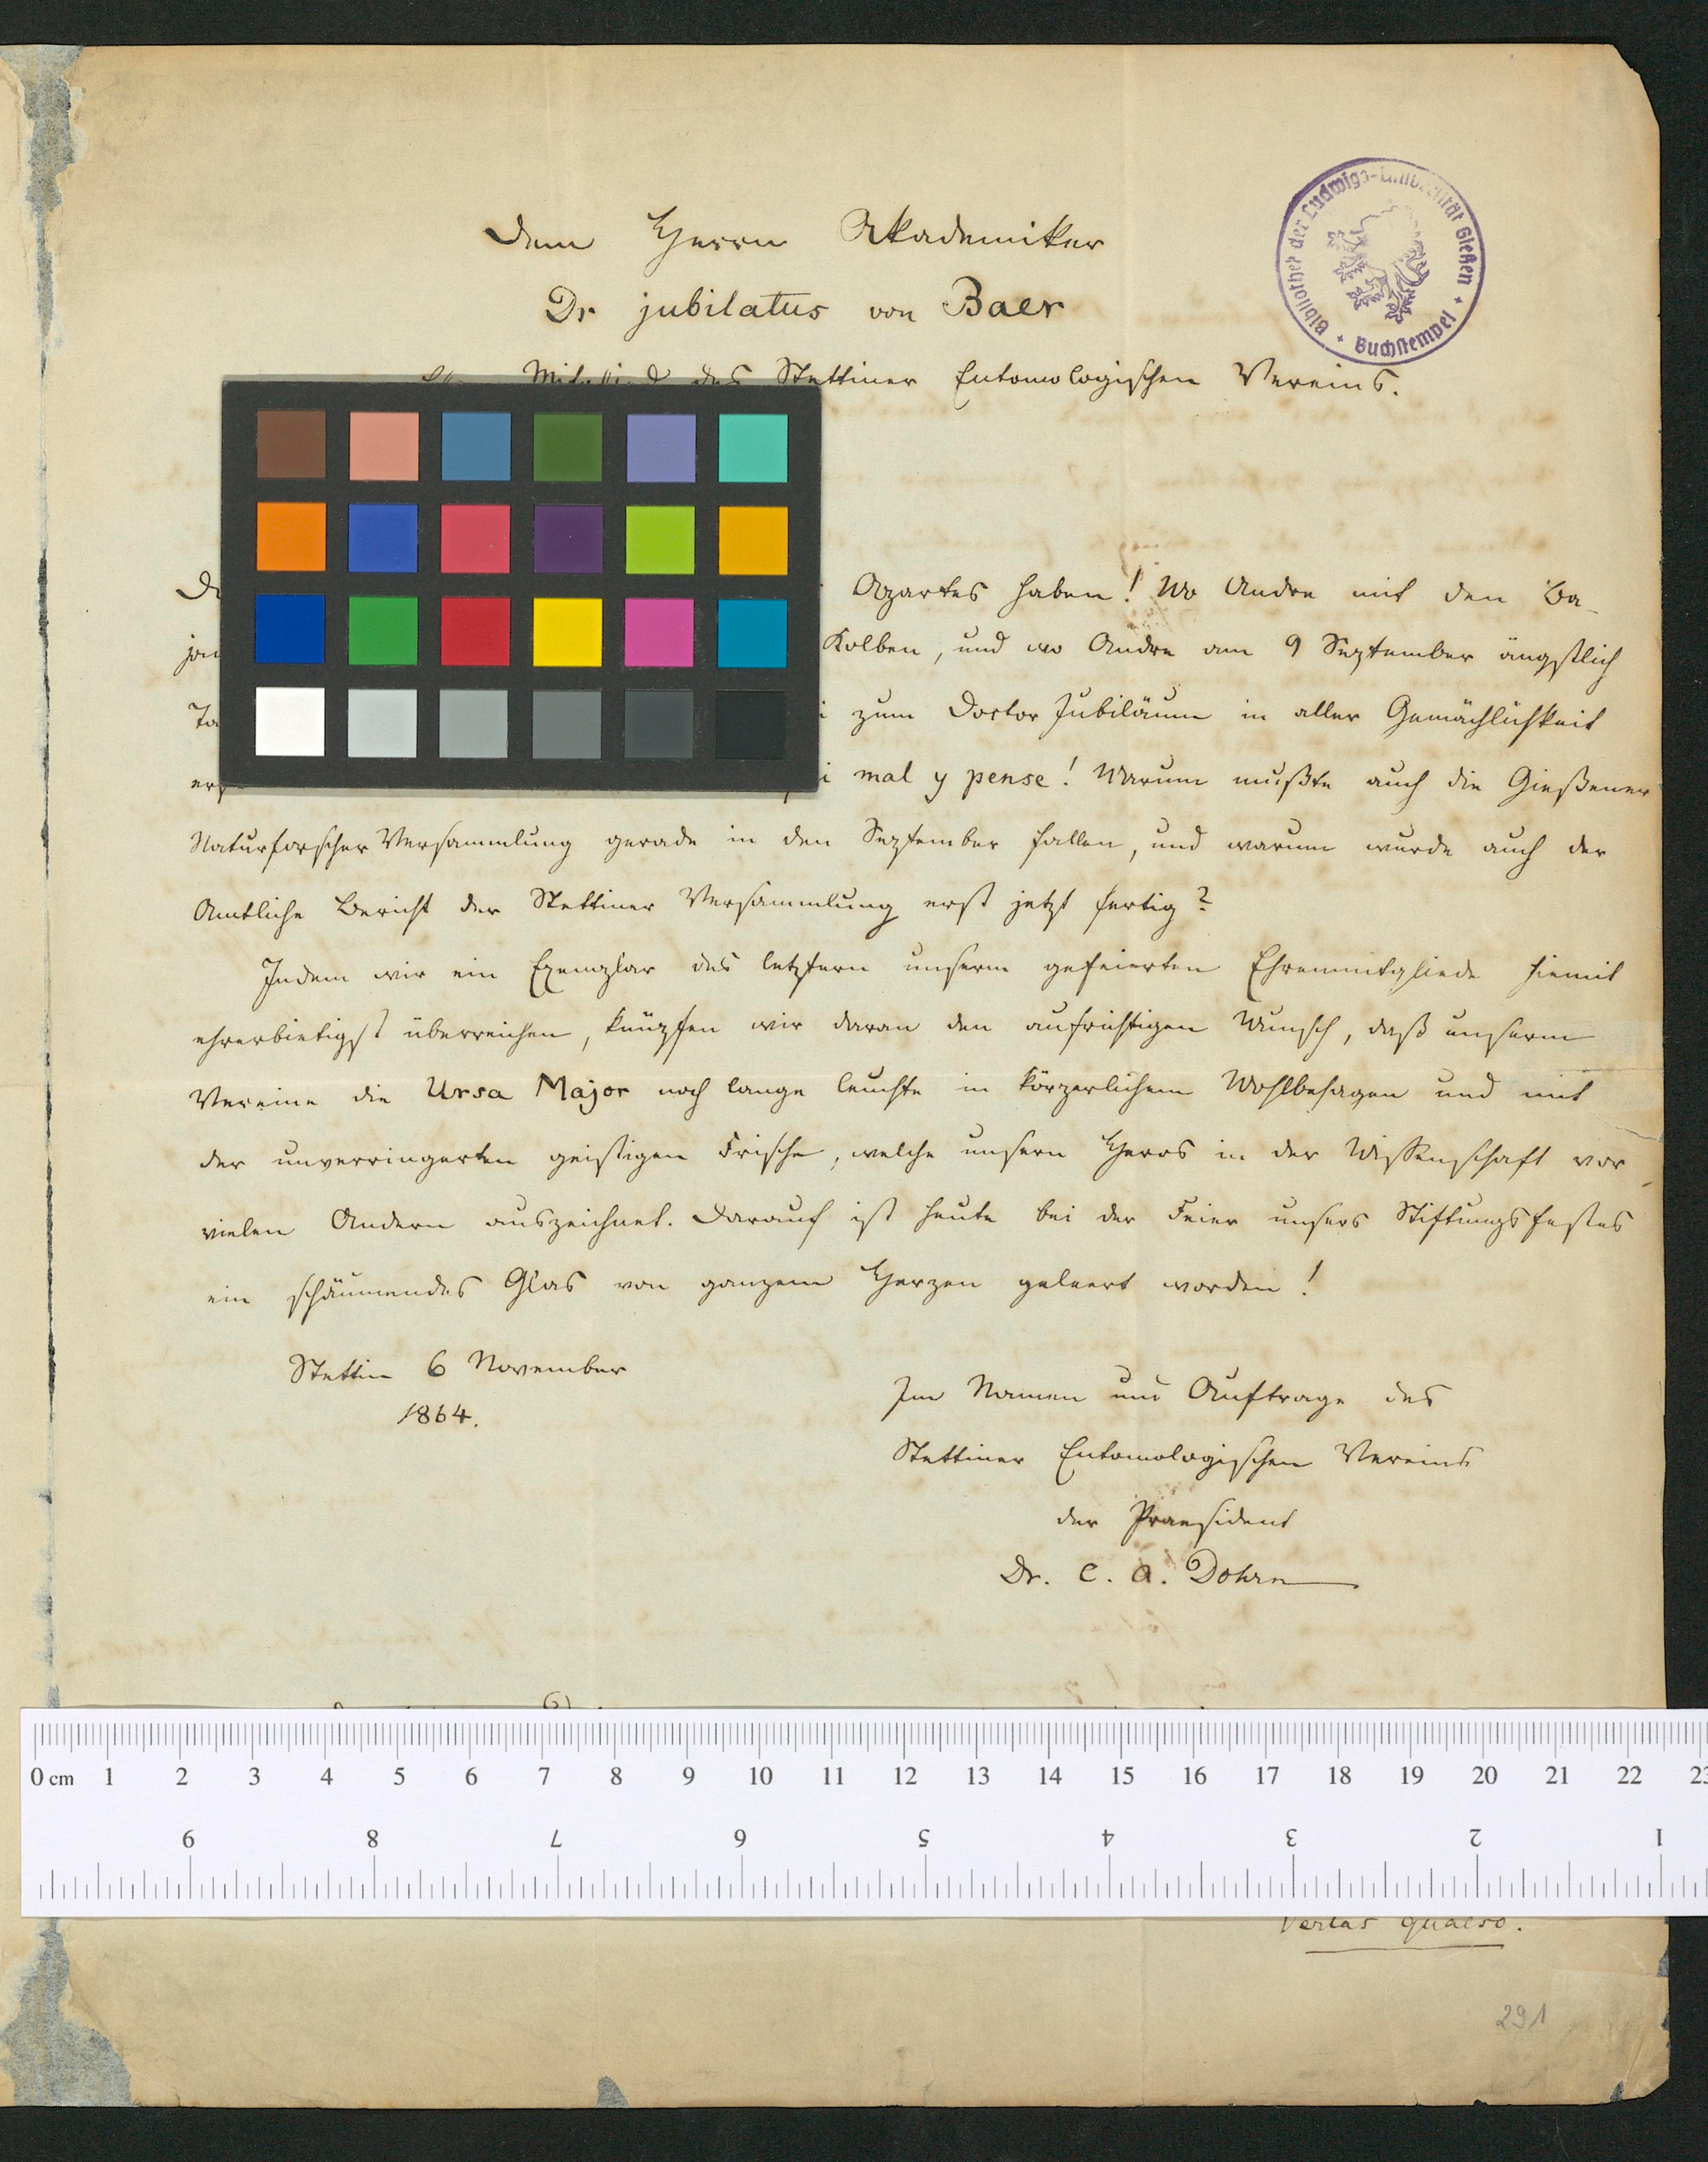 Dem Herrn Akademiker
Dr jubilatus von Baer
Mitglied des Stettiner Entomologischen Vereins.
Bibliothek der Ludwigs-Universität Gießen
Buchstempel
Apartes haben! Wo Andre mit den Ba-
Kolben, und wo Andre am 9 September ängstlich
zum Doctor Jubiläum in aller Gemächlichkeit
mal y pense! Warum mußte auch die Gießener
Naturforscher Versammlung gerade in den September fallen, und warum wurde auch der
Amtliche Bericht der Stettiner Versammlung erst jetzt fertig?
Indem wir ein Exemplar des letztern unserm gefeierten Ehrenmitgliede hiemit
ehrerbietigst überreichen, knüpfen wir daran den aufrichtigen Wunsch, daß unserm
Vereine die Ursa Major noch lange leuchte in körperlichem Wohlbehagen und mit
der unverringerten geistigen Frische, welche unsern Heros in der Wissenschaft vor
vielen Andern auszeichnet. Darauf ist heute bei der Feier unsers Stiftungsfestes
ein schäumendes Glas von ganzem Herzen geleert worden!
Stettin 6 November
1864.
Im Namen und Auftrage des
Stettiner Entomologischen Vereins
der Praesident
Dr. C. A. Dohrn
0 cm 1 2 3 4 5 6 7 8 9 10 11 12 13 14 15 16 17 18 19 20 21 22 23
9 8 7 6 5 4 3 2 1
Vertas quaeso.
291